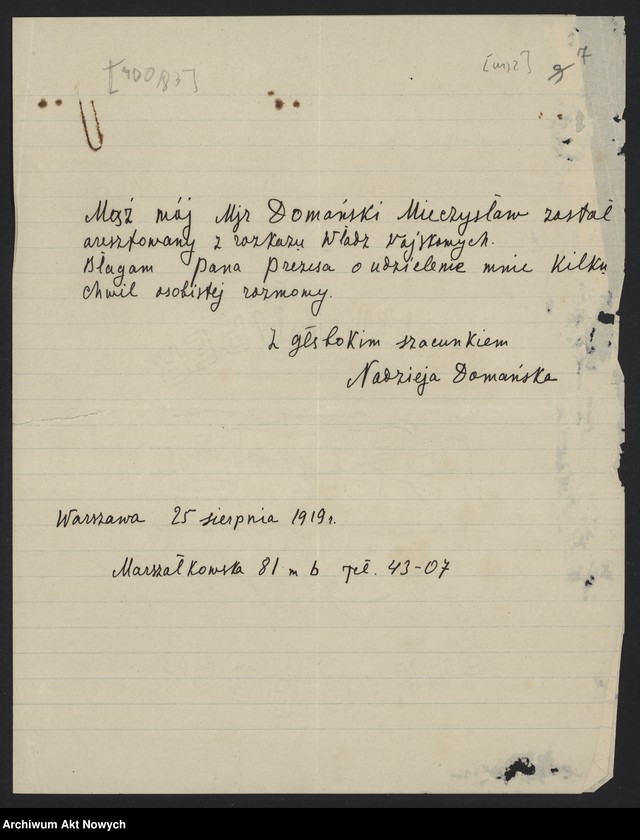 [700/83]
7
Mąż mój Mjr Domański Mieczysław został
aresztowany z rozkazu Władz Wojskowych.
Błagam Pana Prezesa o udzielenie mnie kilku
chwil osobistej rozmowy.
Z głębokim szacunkiem
Nadzieja Domańska
Warszawa 25 sierpnia 1919 r.
Marszałkowska 81 m b tel. 43-07
Archiwum Akt Nowych